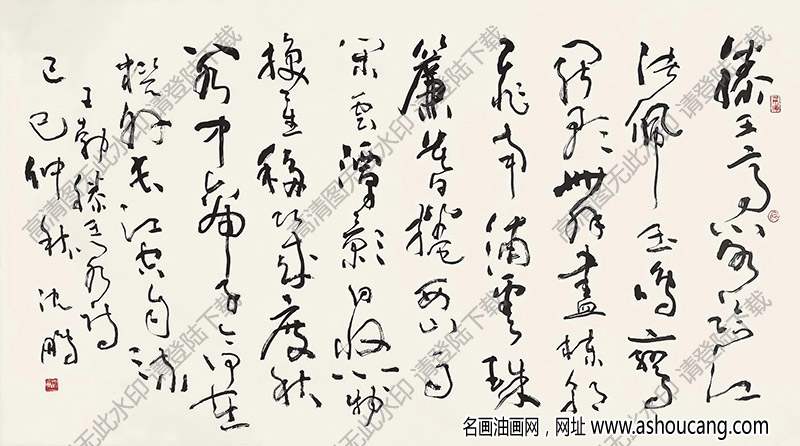 滕王高阁临江
渚佩玉鸣鸾
罷歌舞畫棟朝
飛南浦雲珠
簾暮捲西山雨
閑雲潭影日悠悠物
換星移幾度秋
阁中帝子今何在
檻外長江空自流
王勃滕王阁诗
己巳仲秋 沈鹏
高清图无此水印 请登陆下载
名画油画网，网址 www.ashoucang.com